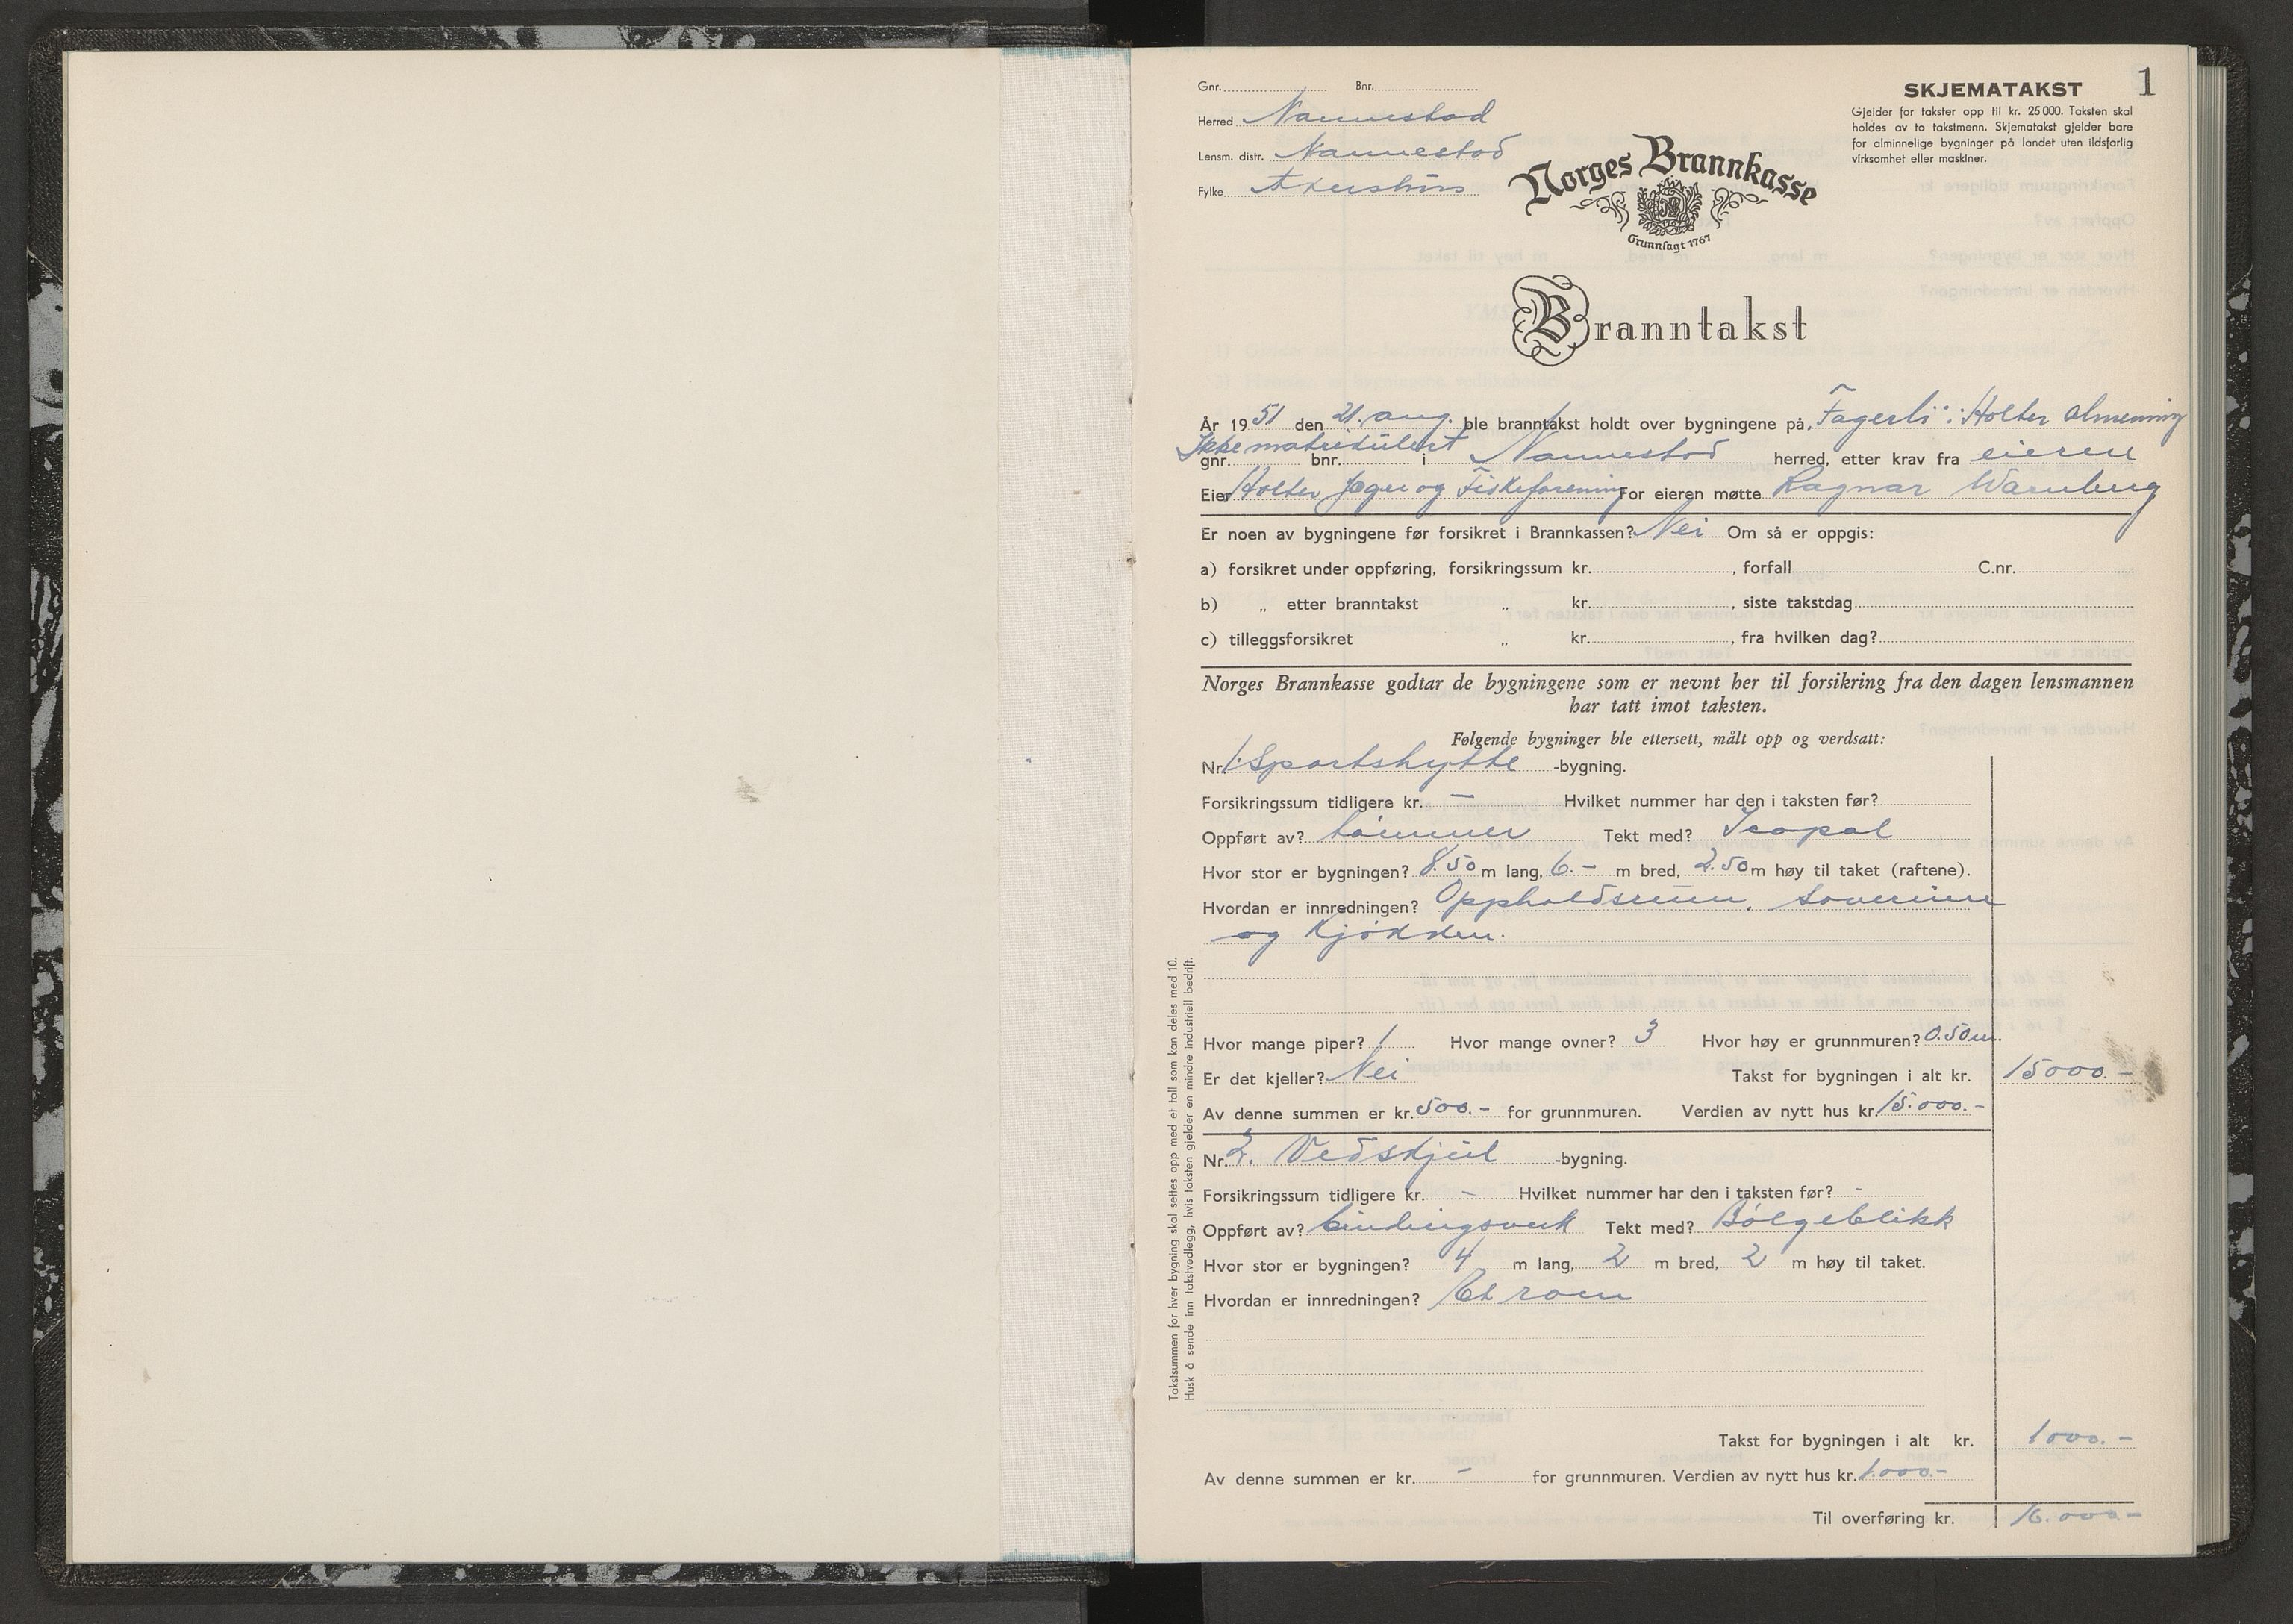 Gnr. Bnr.
SKJEMATAKST 1
Gjelder for takster opp til kr. 25 000. Taksten skal
holdes av to takstmenn. Skjematakst gjelder bare
for alminnelige bygninger på landet uten ildsfarlig
virksomhet eller maskiner.
Herred Nannestad
Lensm. distr. Nannestad
Fylke Akershus
Norges Brannkasse
Grunnlagt 1767
Branntakst
År 1951 den 21. aug. ble branntakst holdt over bygningene på Fagerli i Holter Almenning
Ikke matrikulert
gnr. bnr. i Nannestad herred, etter krav fra eieren
Eier Holter Jeger og Fiskeforening For eieren møtte Ragnar Warnberg
Er noen av bygningene før forsikret i Brannkassen? Nei Om så er oppgis:
a) forsikret under oppføring, forsikringssum kr. , forfall C.nr.
b) „ etter branntakst „ kr. , siste takstdag
c) tilleggsforsikret „ kr. , fra hvilken dag?
Norges Brannkasse godtar de bygningene som er nevnt her til forsikring fra den dagen lensmannen
har tatt imot taksten.
Følgende bygninger ble ettersett, målt opp og verdsatt:
Nr. 1. Sportshytte -bygning.
Forsikringssum tidligere kr. – Hvilket nummer har den i taksten før?
Oppført av? tømmer Tekt med? Icopal
Hvor stor er bygningen? 8.50 m lang, 6.- m bred, 2.50 m høy til taket (raftene).
Hvordan er innredningen? Oppholdsrum, soverum
og kjøkken.
Hvor mange piper? 1 Hvor mange ovner? 3 Hvor høy er grunnmuren? 0.50 m.
Er det kjeller? Nei Takst for bygningen i alt kr. 15000.-
Av denne summen er kr. 500.- for grunnmuren. Verdien av nytt hus kr. 15.000.-
Nr. 2. Vedskjul -bygning.
Forsikringssum tidligere kr. - Hvilket nummer har den i taksten før? -
Oppført av? bindingsverk Tekt med? Bølgeblikk
Hvor stor er bygningen? 4 m lang, 2 m bred, 2 m høy til taket.
Hvordan er innredningen? Et rom
Takst for bygningen i alt kr. 1000.-
Av denne summen er kr. - for grunnmuren. Verdien av nytt hus kr. 1.000.-
Til overføring kr. 16.000.-
Takstsummen for hver bygning skal settes opp med et tall som kan deles med 10.
Husk å sende inn takstvedlegg, hvis taksten gjelder en mindre industriell bedrift.